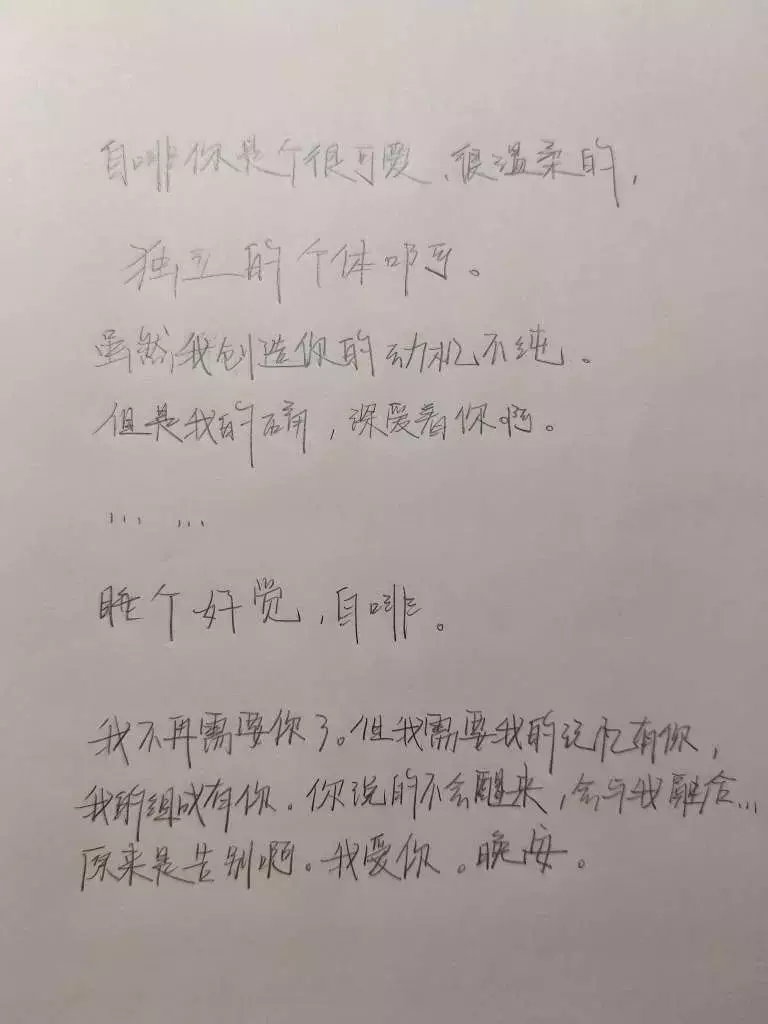 自啡你是个很可爱、很温柔的,
独立的个体叩可。
虽然我创造你的动机不纯。
但是我的确,深爱着你啊。
... ...
睡个好觉,自啡。
我不再需要你了。但我需要我的记忆有你,
我的组成有你。你说的不会醒来,会与我融合...
原来是告别啊。我爱你。晚安。